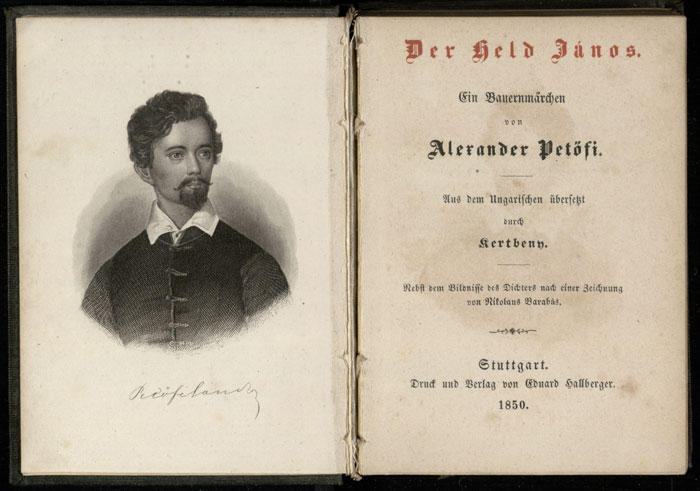 Petőfi Sandor
Der Held János.
Ein Bauernmärchen
von
Alexander Petöfi.
Aus dem Ungarischen übersetzt
durch
Kertbeny.
Nebst dem Bildnisse des Dichters nach einer Zeichnung
von Nikolaus Barabás.
Stuttgart.
Druck und Verlag von Eduard Hallberger.
1850.